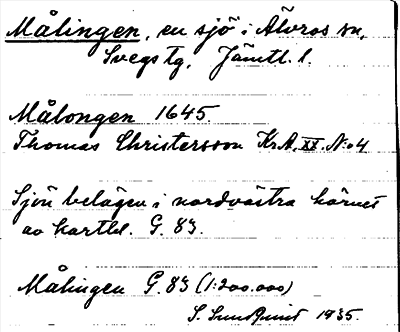 Målingen, en sjö i Älvros sn,
Svegs tg, Jämtl. l.
Målongen 1645
Thomas Christersson Kr.A. XX. N:o 4
Sjön belägen i nordvästra hörnet
av kartbl. G. 83.
Målingen G. 83 (1:200.000)
S. Sundquist 1935.